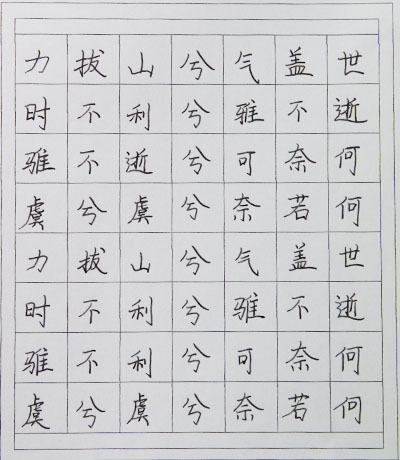 力拔山兮气盖世
时不利兮骓不逝
骓不逝兮可奈何
虞兮虞兮奈若何
力拔山兮气盖世
时不利兮骓不逝
骓不利兮可奈何
虞兮虞兮奈若何